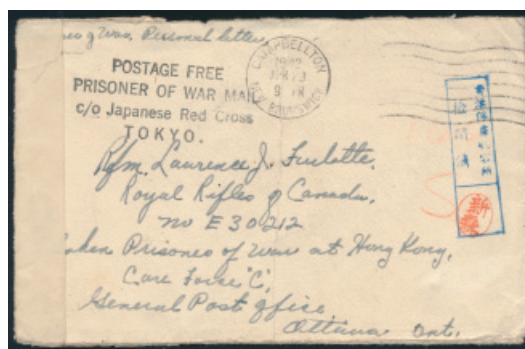 of War. Personal letter
POSTAGE FREE
PRISONER OF WAR MAIL
c/o Japanese Red Cross
TOKYO.
CAMPBELLTON
NEW BRUNSWICK
Rfm. Laurence J. Furlotte.
Royal Rifles of Canada.
no E30212
Taken Prisoner of war at Hong Kong,
Care Force "C",
General Post Office
Ottawa Ont.